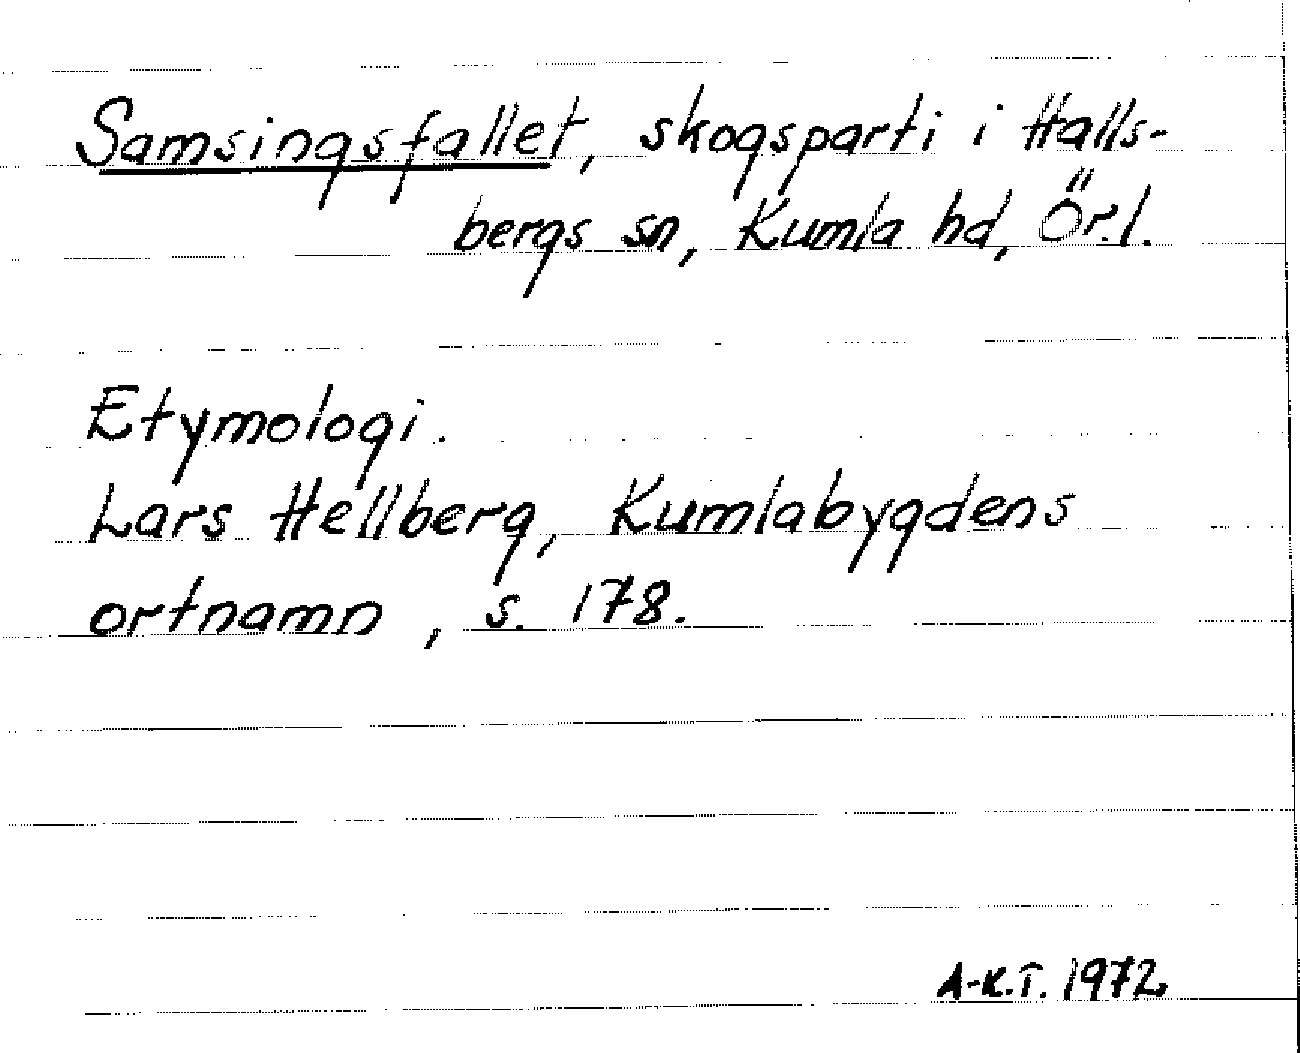 Samsingsfallet, skogsparti i Halls-
bergs sn, Kumla hd, Ör.l.
Etymologi.
Lars Hellberg, Kumlabygdens
ortnamn, s. 178.
A-K.T. 1972